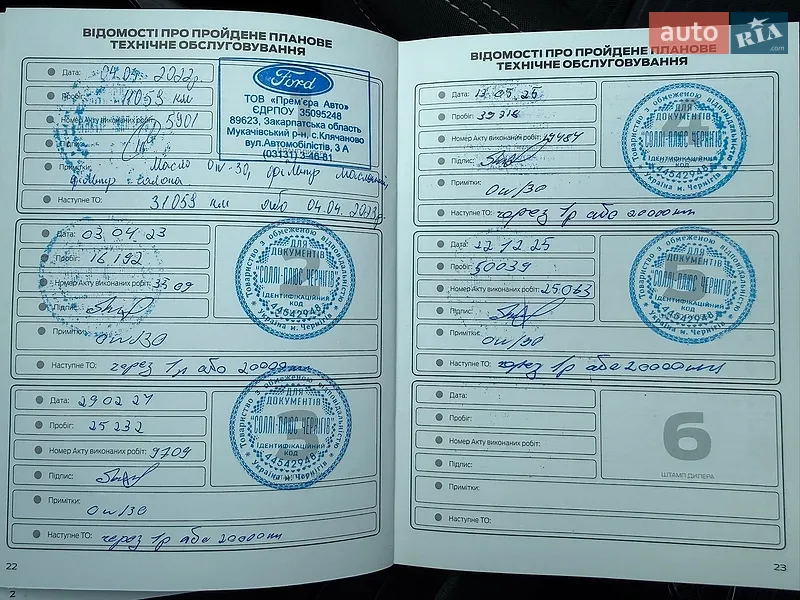 ВІДОМОСТІ ПРО ПРОЙДЕНЕ ПЛАНОВЕ
ТЕХНІЧНЕ ОБСЛУГОВУВАННЯ
Дата: 04.04. 2022р.
Пробіг: 11053 км
Номер Акту виконаних робіт: 5901
Підпис:
Примітки: Масло 0w-30, фільтр масляний,
фільтр салона.
Наступне ТО: 31053 км або 04.04. 2023р
Ford
ТОВ «Прем'єра Авто»
ЄДРПОУ 35095248
89623, Закарпатська область
Мукачівський р-н, с.Клячаново
вул.Автомобілістів, 3 А
(03131) 3-46-81
Дата: 03.04.23
Пробіг: 16 192
Номер Акту виконаних робіт: 3509
Підпис:
Примітки: 0w/30
Наступне ТО: через 1р або 20000км
Товариство з обмеженою відповідальністю
ДЛЯ
ДОКУМЕНТІВ
"СОЛЛІ-ПЛЮС ЧЕРНІГІВ"
ІДЕНТИФІКАЦІЙНИЙ
КОД
44542948
Україна м. Чернігів
Дата: 29 02 24
Пробіг: 25 232
Номер Акту виконаних робіт: 9709
Підпис:
Примітки: 0w/30
Наступне ТО: через 1р або 20000км
3
Товариство з обмеженою відповідальністю
ДЛЯ
ДОКУМЕНТІВ
"СОЛЛІ-ПЛЮС ЧЕРНІГІВ"
ІДЕНТИФІКАЦІЙНИЙ
КОД
44542948
Україна м. Чернігів
22
2
ВІДОМОСТІ ПРО ПРОЙДЕНЕ ПЛАНОВЕ
ТЕХНІЧНЕ ОБСЛУГОВУВАННЯ
Дата: 12 03 25
Пробіг:
Номер Акту виконаних робіт: 17487
Підпис:
Примітки: 0w/30
Наступне ТО: через 1р або 20000км
4
Товариство з обмеженою відповідальністю
ДЛЯ
ДОКУМЕНТІВ
"СОЛЛІ-ПЛЮС ЧЕРНІГІВ"
ІДЕНТИФІКАЦІЙНИЙ
КОД
44542948
Україна м. Чернігів
Дата: 22 12 25
Пробіг: 50039
Номер Акту виконаних робіт: 25063
Підпис:
Примітки: 0w/30
Наступне ТО: через 1р або 20000км
5
Товариство з обмеженою відповідальністю
ДЛЯ
ДОКУМЕНТІВ
"СОЛЛІ-ПЛЮС ЧЕРНІГІВ"
ІДЕНТИФІКАЦІЙНИЙ
КОД
44542948
Україна м. Чернігів
Дата:
Пробіг:
Номер Акту виконаних робіт:
Підпис:
Примітки:
Наступне ТО:
6
ШТАМП ДИЛЕРА
23
auto RIA .com